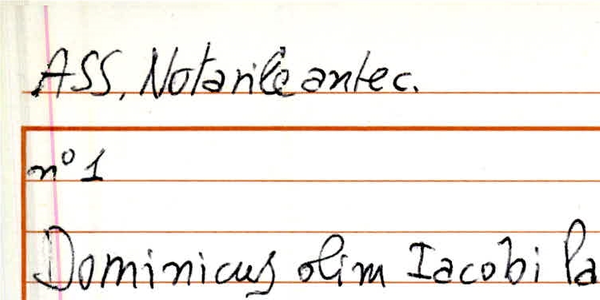 ASS, Notarile antec.
nº 1
Dominicus olim Iacobi Pa